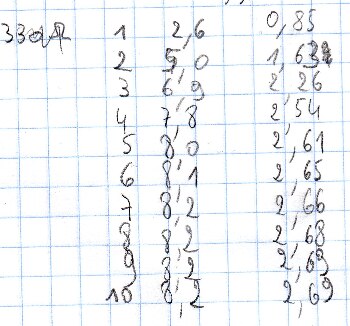 1 2,6 0,85
2 5,0 1,63
3 6,9 2,26
4 7,8 2,54
5 8,0 2,61
6 8,1 2,65
7 8,2 2,66
8 8,2 2,68
9 8,2 2,69
10 8,2 2,69